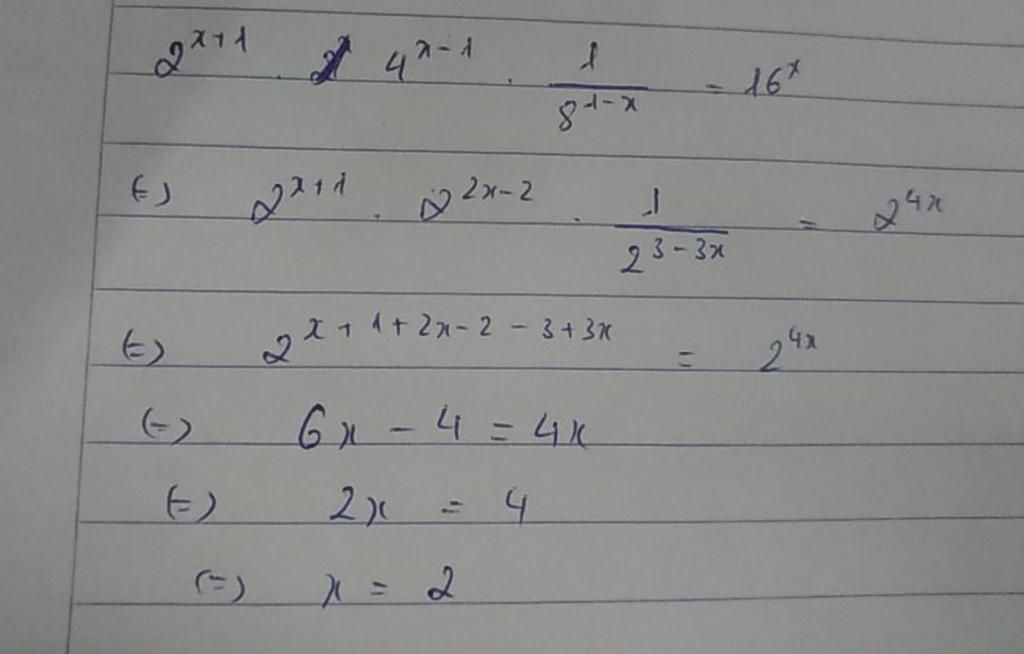 2^{x+1} . 4^{x-1} . \frac{1}{8^{1-x}} = 16^x
(=) 2^{x+1} . 2^{2x-2} . \frac{1}{2^{3-3x}} = 2^{4x}
(=) 2^{x+1+2x-2-3+3x} = 2^{4x}
(=) 6x - 4 = 4x
(=) 2x = 4
(=) x = 2